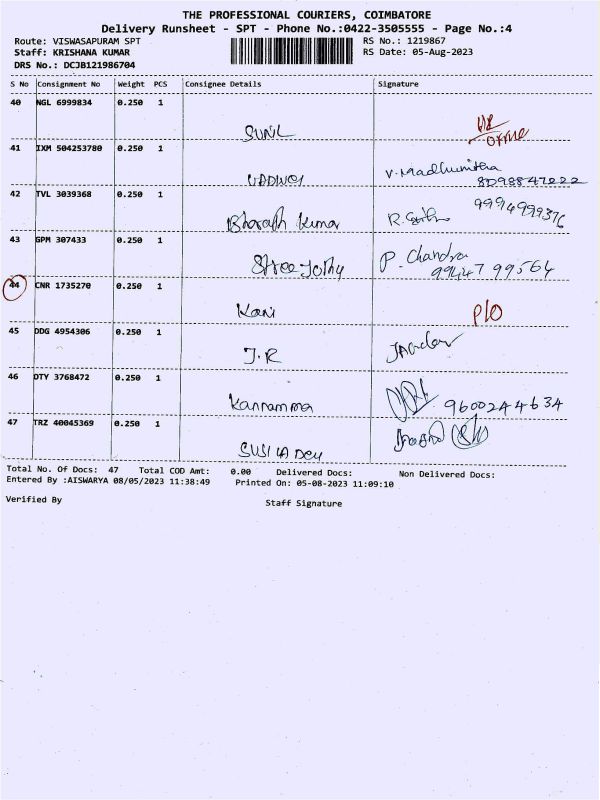 THE PROFESSIONAL COURIERS, COIMBATORE
Delivery Runsheet - SPT - Phone No.:0422-3505555 - Page No.:4
Route: VISWASAPURAM SPT
RS No.: 1219867
Staff: KRISHANA KUMAR
RS Date: 05-Aug-2023
DRS No.: DCJB121986704
S No Consignment No Weight PCS Consignee Details Signature
40 NGL 6999834 0.250 1
SUNIL
office
41 IXM 504253780 0.250 1
V. Madhumitha
8098847222
42 TVL 3039368 0.250 1
Bharath Kumar
9994999376
43 GPM 307433 0.250 1
Sree Jothy P. Chandra
99447 99564
44 CNR 1735270 0.250 1
Kani P/O
45 DDG 4954306 0.250 1
J.R
46 DTY 3768472 0.250 1
Kannamma 9600244634
47 TRZ 40045369 0.250 1
SUSILA Devi
Total No. Of Docs: 47 Total COD Amt: 0.00 Delivered Docs: Non Delivered Docs:
Entered By :AISWARYA 08/05/2023 11:38:49 Printed On: 05-08-2023 11:09:10
Verified By Staff Signature